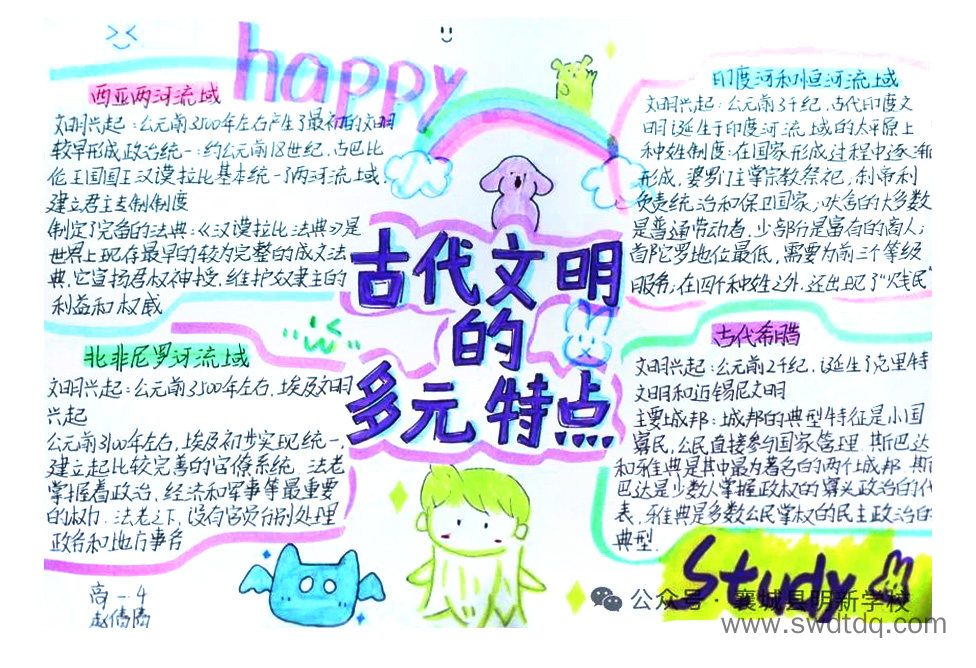 happy
西亚两河流域
文明兴起:公元前3500年左右产生了最初的文明
较早形成政治统一:约公元前18世纪,古巴比
伦王国国王汉谟拉比基本统一了两河流域,
建立君主专制制度
制定了完备的法典:《汉谟拉比法典》是
世界上现存最早的较为完整的成文法
典,它宣扬君权神授,维护奴隶主的
利益和权威
北非尼罗河流域
文明兴起:公元前3500年左右,埃及文明
兴起
公元前3100年左右,埃及初步实现统一,
建立起比较完善的官僚系统 法老
掌握着政治、经济和军事等最重要
的权力.法老之下,设有官员分别处理
政务和地方事务
高一4
古代文明
的
多元特点
印度河和恒河流域
文明兴起:公元前3千纪,古代印度文
明诞生于印度河流域的大平原上
种姓制度:在国家形成过程中逐渐
形成,婆罗门主掌宗教祭祀,刹帝利
负责统治和保卫国家,吠舍的大多数
是普通劳动者,少部分是富有的商人;
首陀罗地位最低,需要为前三个等级
服务,在四个种姓之外,还出现了“贱民”
古代希腊
文明兴起:公元前2千纪,诞生了克里特
文明和迈锡尼文明
主要城邦:城邦的典型特征是小国
寡民,公民直接参与国家管理.斯巴达
和雅典是其中最为著名的两个城邦.斯
巴达是少数人掌握政权的寡头政治的代
表,雅典是多数公民掌权的民主政治的
典型.
Study
公众号·襄城县明新学校
www.swdtdq.com